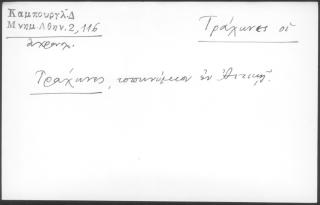 Καμπουργλ. Δ
Μνημ. Ἀθην. 2, 116
ἀχρον.
Τράχωνες οἱ
Τράχωνες, τοπωνύμιον ἐν Ἀττικῇ.